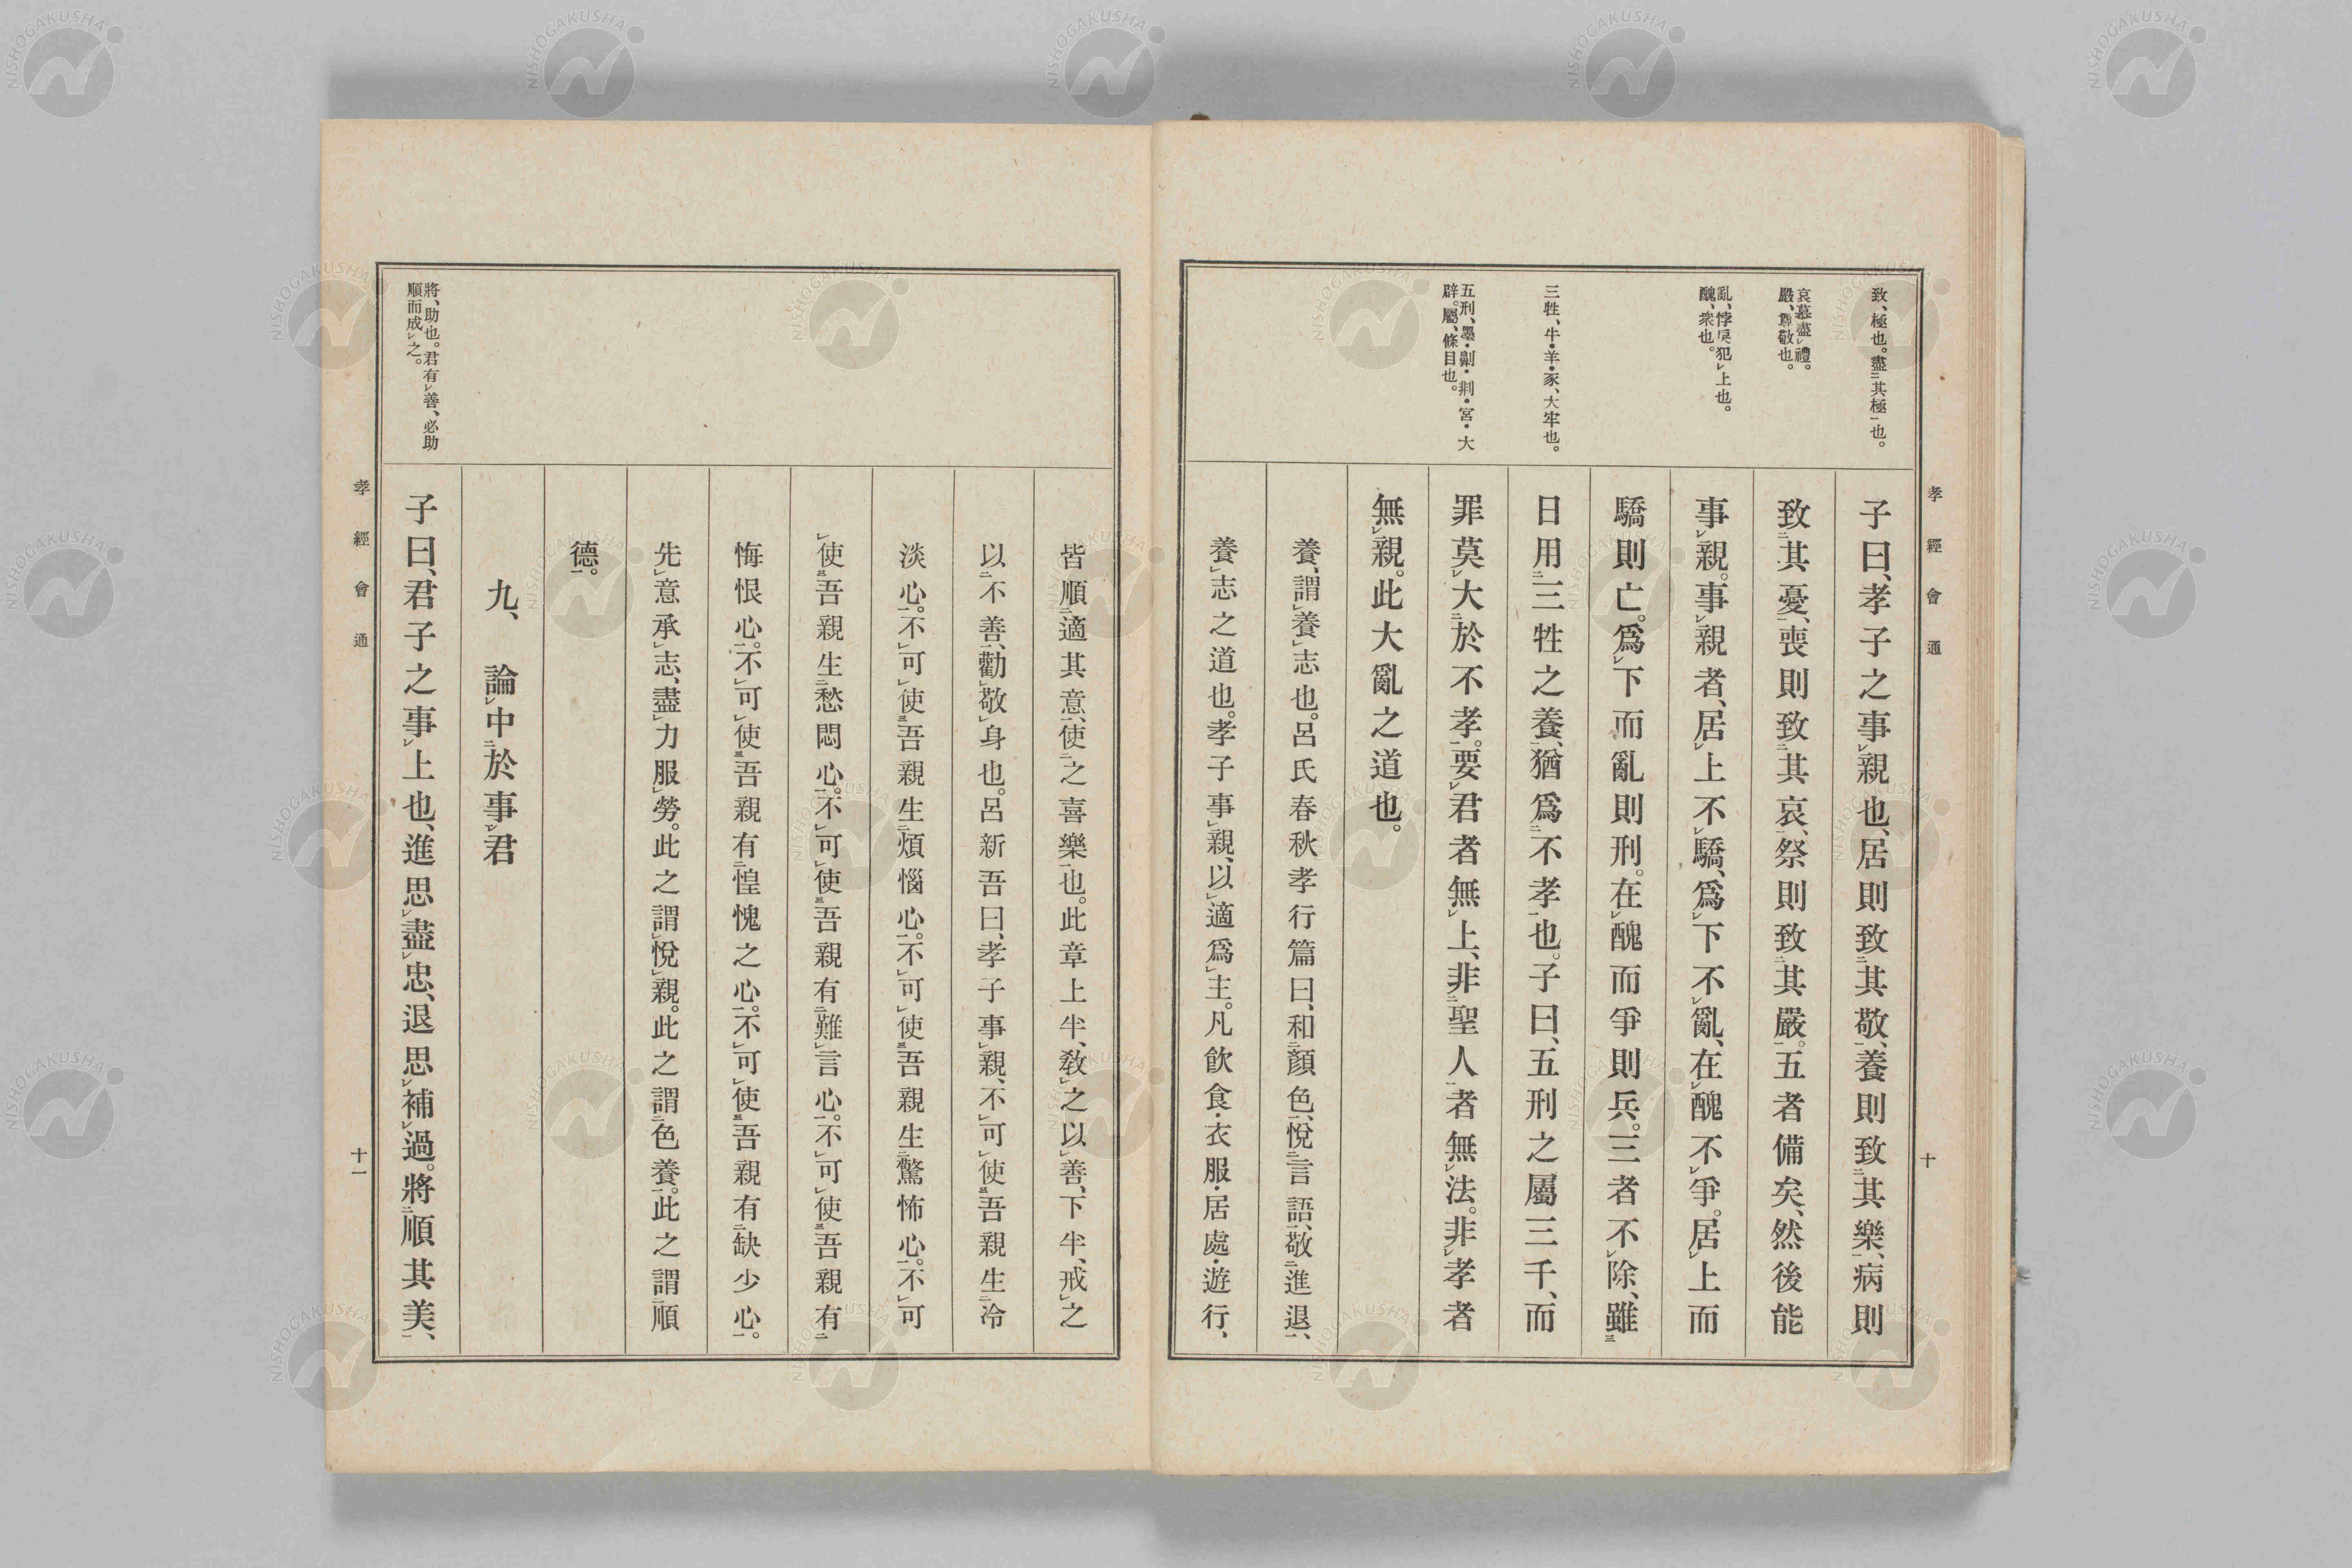 孝經會通
十
致、極也。盡㆓其極㆒也。
哀慕盡㆑禮。
嚴、尊敬也。
亂、悖戾犯㆑上也。
醜、衆也。
三牲、牛・羊・豕、大牢也。
五刑、墨・劓・剕・宮・大
辟。屬、條目也。
子曰、孝子之事㆑親也、居則致㆓其敬㆒、養則致㆓其樂㆒、病則
致㆓其憂㆒、喪則致㆓其哀㆒、祭則致㆓其嚴㆒。五者備矣、然後能
事㆑親。事㆑親者、居㆑上不㆑驕、爲㆑下不㆑亂、在㆑醜不㆑爭。居㆑上而
驕則亡。爲㆑下而亂則刑。在㆑醜而爭則兵。三者不㆑除、雖㆘
日用㆓三牲之養㆒、猶爲㆓不孝㆒也。子曰、五刑之屬三千、而
罪莫㆑大㆓於不孝㆒。要㆑君者無㆑上、非㆓聖人㆒者無㆑法。非㆑孝者
無㆑親。此大亂之道也。
養、謂㆑養㆑志也。呂氏春秋孝行篇曰、和㆓顏色㆒、悅㆓言語㆒、敬㆓進退㆒、
養㆑志之道也。孝子事㆑親、以㆑適爲㆑主。凡飮食・衣服・居處・遊行、
皆順㆓適其意㆒、使㆓之喜樂㆒也。此章上半、敎㆑之以㆑善、下半、戒㆑之
以㆓不善㆒、勸㆑敬㆑身也。呂新吾曰、孝子事㆑親、不㆑可㆑使㆔吾親生㆓冷
淡心㆒。不㆑可㆑使㆔吾親生㆓煩惱心㆒。不㆑可㆑使㆔吾親生㆓驚怖心㆒。不㆑可
㆑使㆔吾親生㆓愁悶心㆒。不㆑可㆑使㆔吾親有㆓難㆑言心㆒。不㆑可㆑使㆔吾親有㆓
悔恨心㆒。不㆑可㆑使㆔吾親有㆓惶愧之心㆒。不㆑可㆑使㆔吾親有㆓缺少心㆒。
先㆑意承㆑志、盡㆑力服㆑勞。此之謂㆑悅㆑親。此之謂㆓色養㆒。此之謂㆓順
德㆒。
九、論㆑中㆓於事㆑君
子曰、君子之事㆑上也、進思㆑盡㆑忠、退思㆑補㆑過。將㆓順其美㆒、
將、助也。君有㆑善、必助
順而成㆑之。
孝經會通
十一